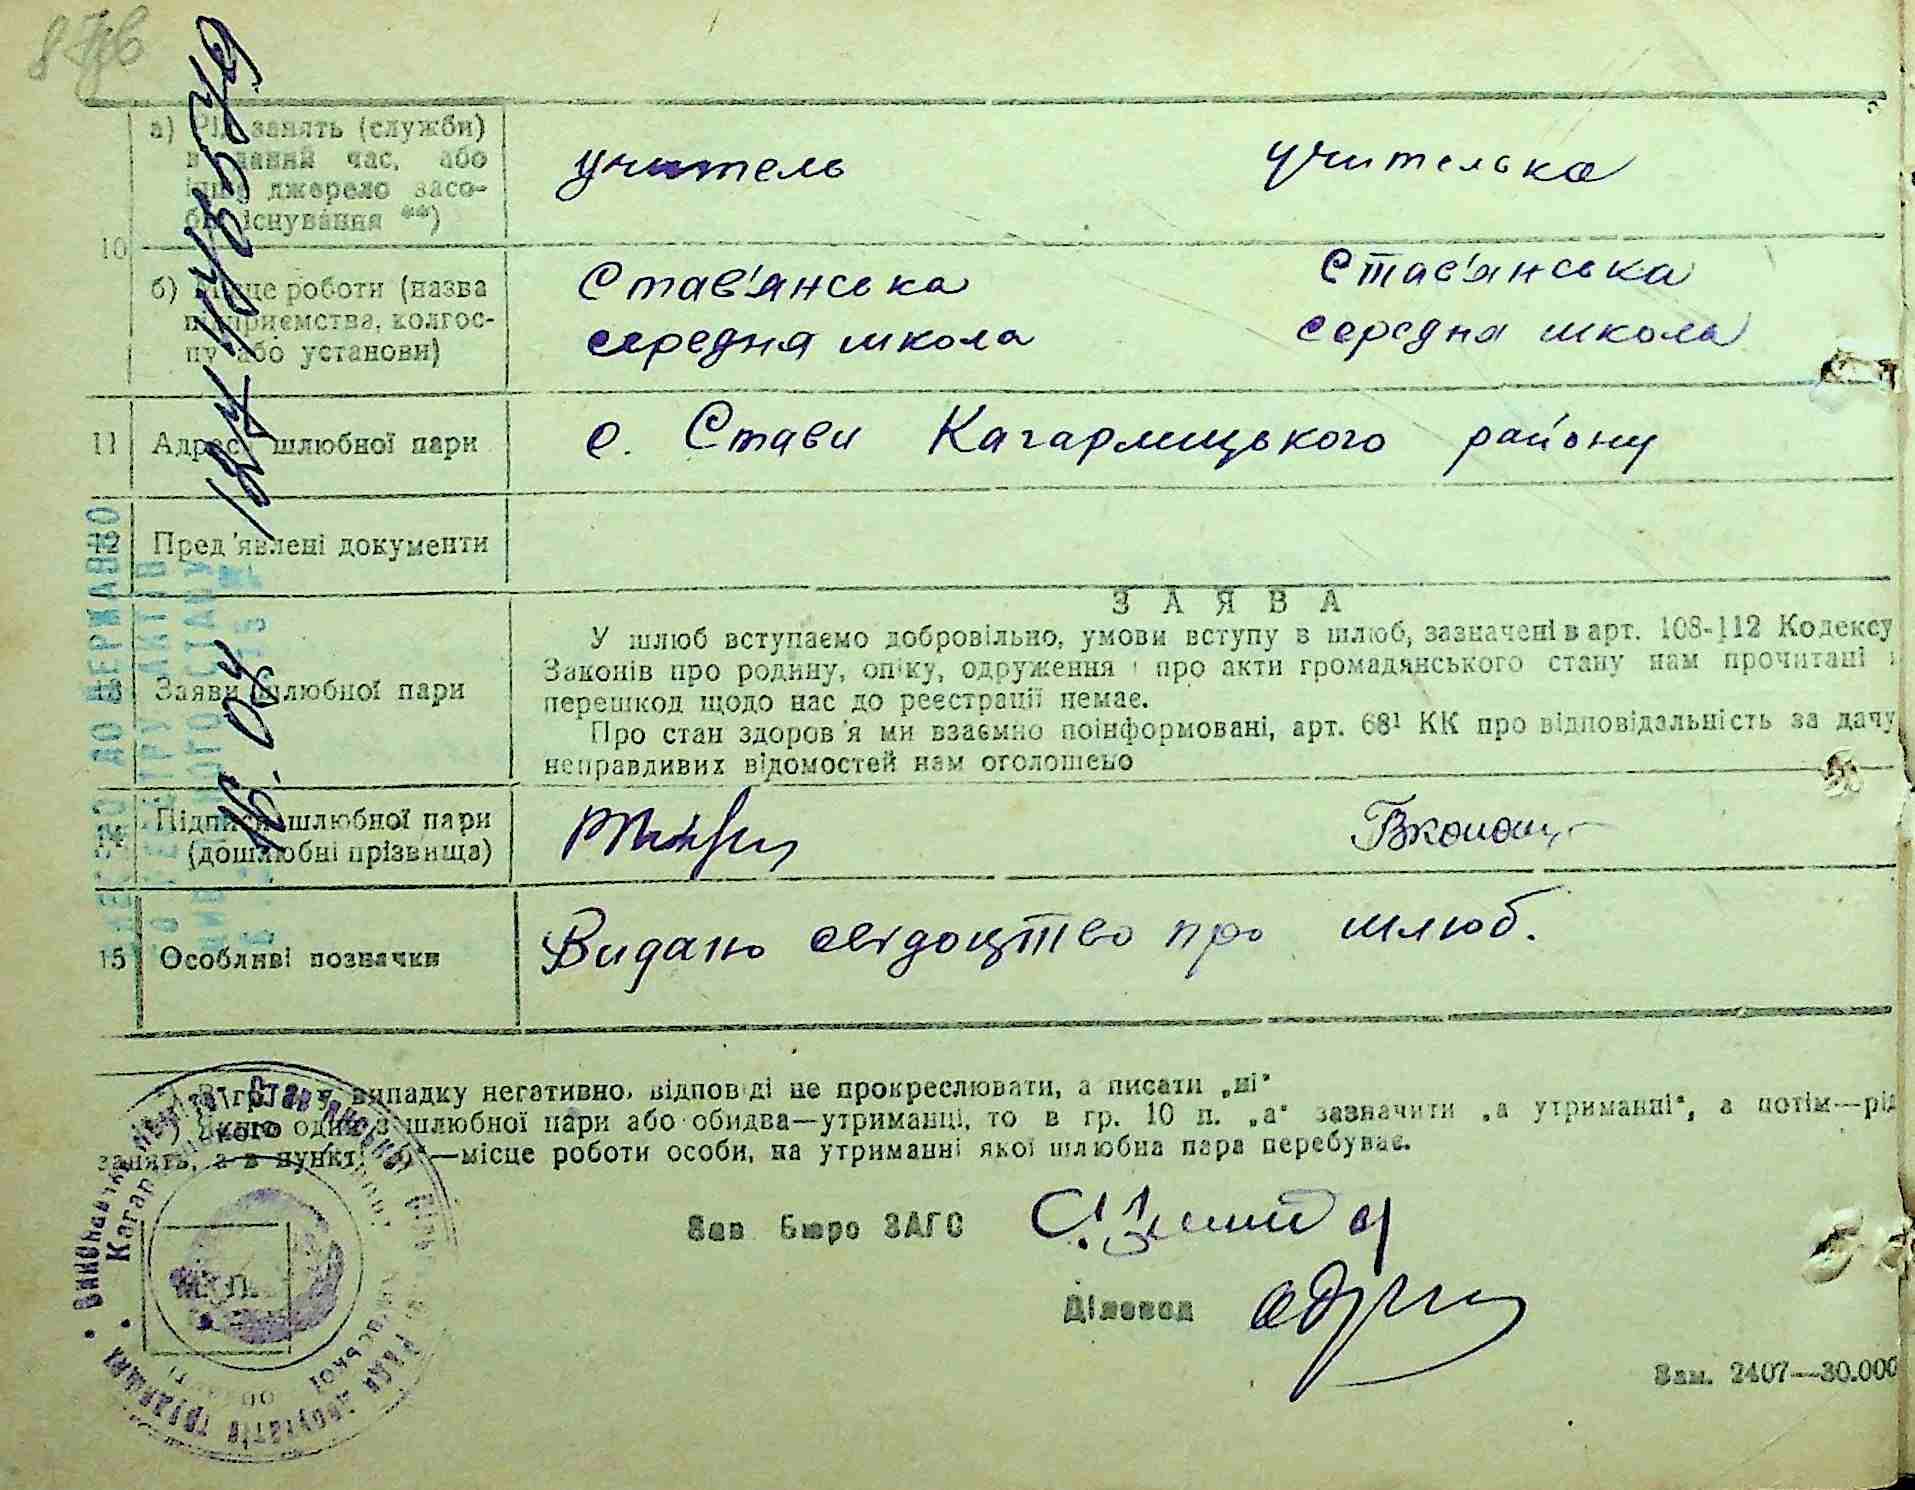 а) Рід занять (служби)
в даний час, або
інше джерело засо-
бів існування **)
учитель учителька
10
б) Місце роботи (назва
підприємства, колгос-
пу або установи)
Став'янська Став'янська
середня школа середня школа
11 Адреса шлюбної пари
с. Стави Кагарлицького району
12 Пред'явлені документи
ЗАЯВА
13 Заяви шлюбної пари
У шлюб вступаємо добровільно, умови вступу в шлюб, зазначені в арт. 108-112 Кодексу
Законів про родину, опіку, одруження і про акти громадянського стану нам прочитані і
перешкод щодо нас до реєстрації немає.
Про стан здоров'я ми взаємно поінформовані, арт. 68¹ КК про відповідальність за дачу
неправдивих відомостей нам оголошено
14 Підписи шлюбної пари
(дошлюбні прізвища)
15 Особливі позначки
Видано свідоцтво про шлюб.
ВНЕСЕНО ДО ДЕРЖАВНО
ГО РЕЄСТРУ АКТІВ
16.04
випадку негативно, відповіді не прокреслювати, а писати „ні"
Якщо один з шлюбної пари або обидва—утриманці, то в гр. 10 п. „а" зазначити „а утриманці", а потім—рід
занять, а в пункті —місце роботи особи, на утриманні якої шлюбна пара перебуває.
Зав Бюро ЗАГС
Діловод
М.П.
Зам. 2407—30.000